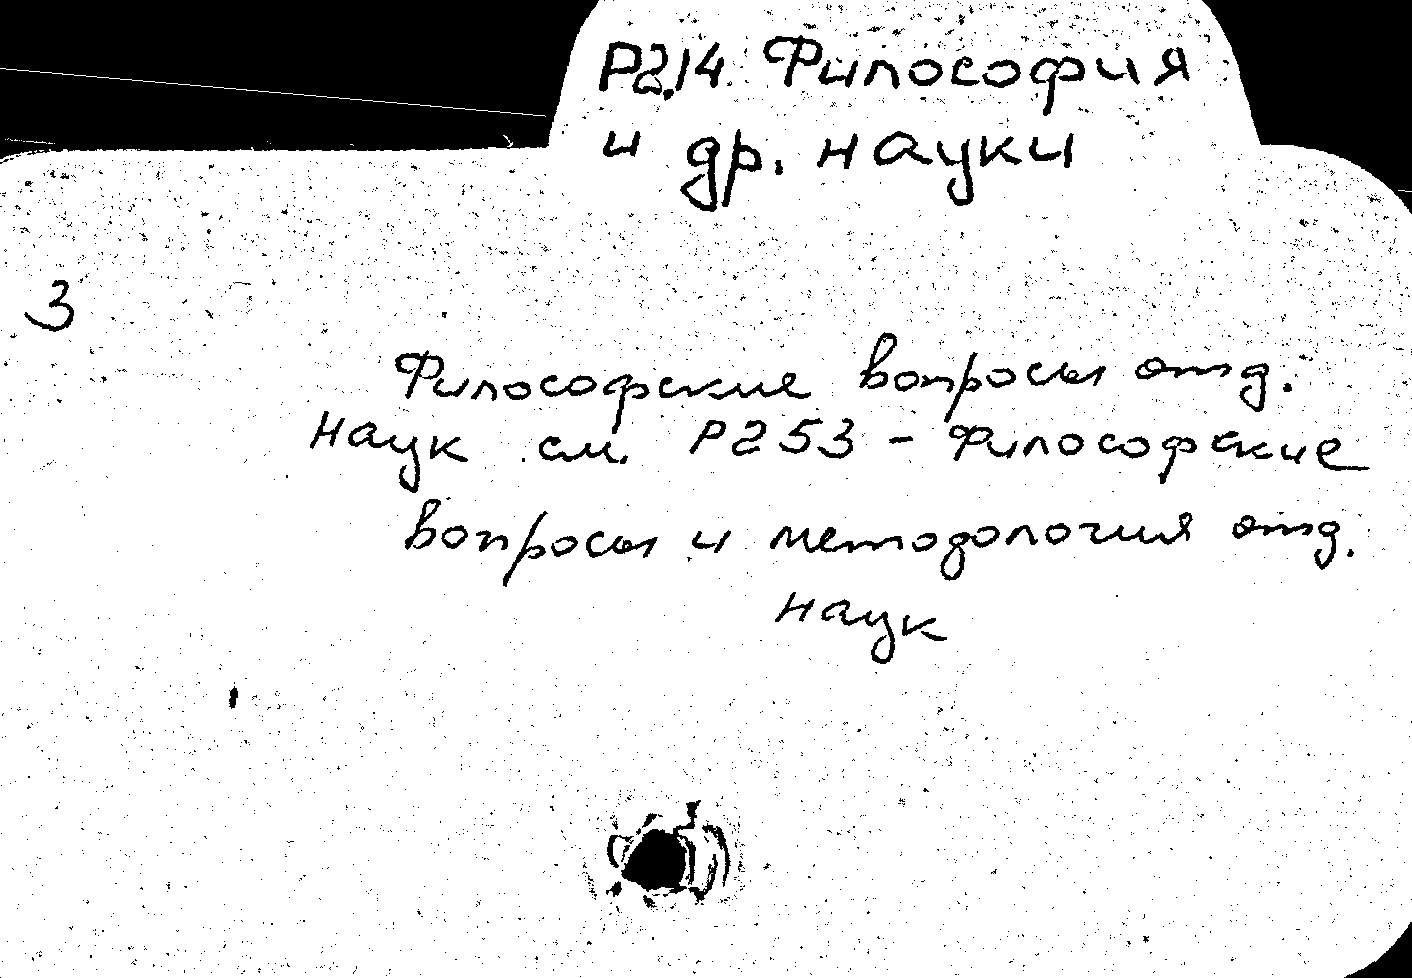 Р2.14 Философия
и др. науки
3
Философские вопросы отд.
наук см. Р253 - Философские
вопросы и методология отд.
наук